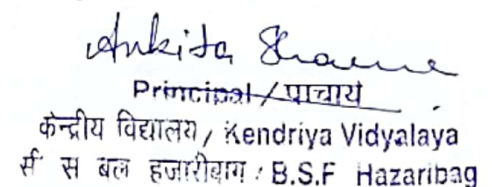 Ankita Sharma
Principal / प्राचार्य
केन्द्रीय विद्यालय / Kendriya Vidyalaya
सी स बल हजारीबाग / B.S.F Hazaribag